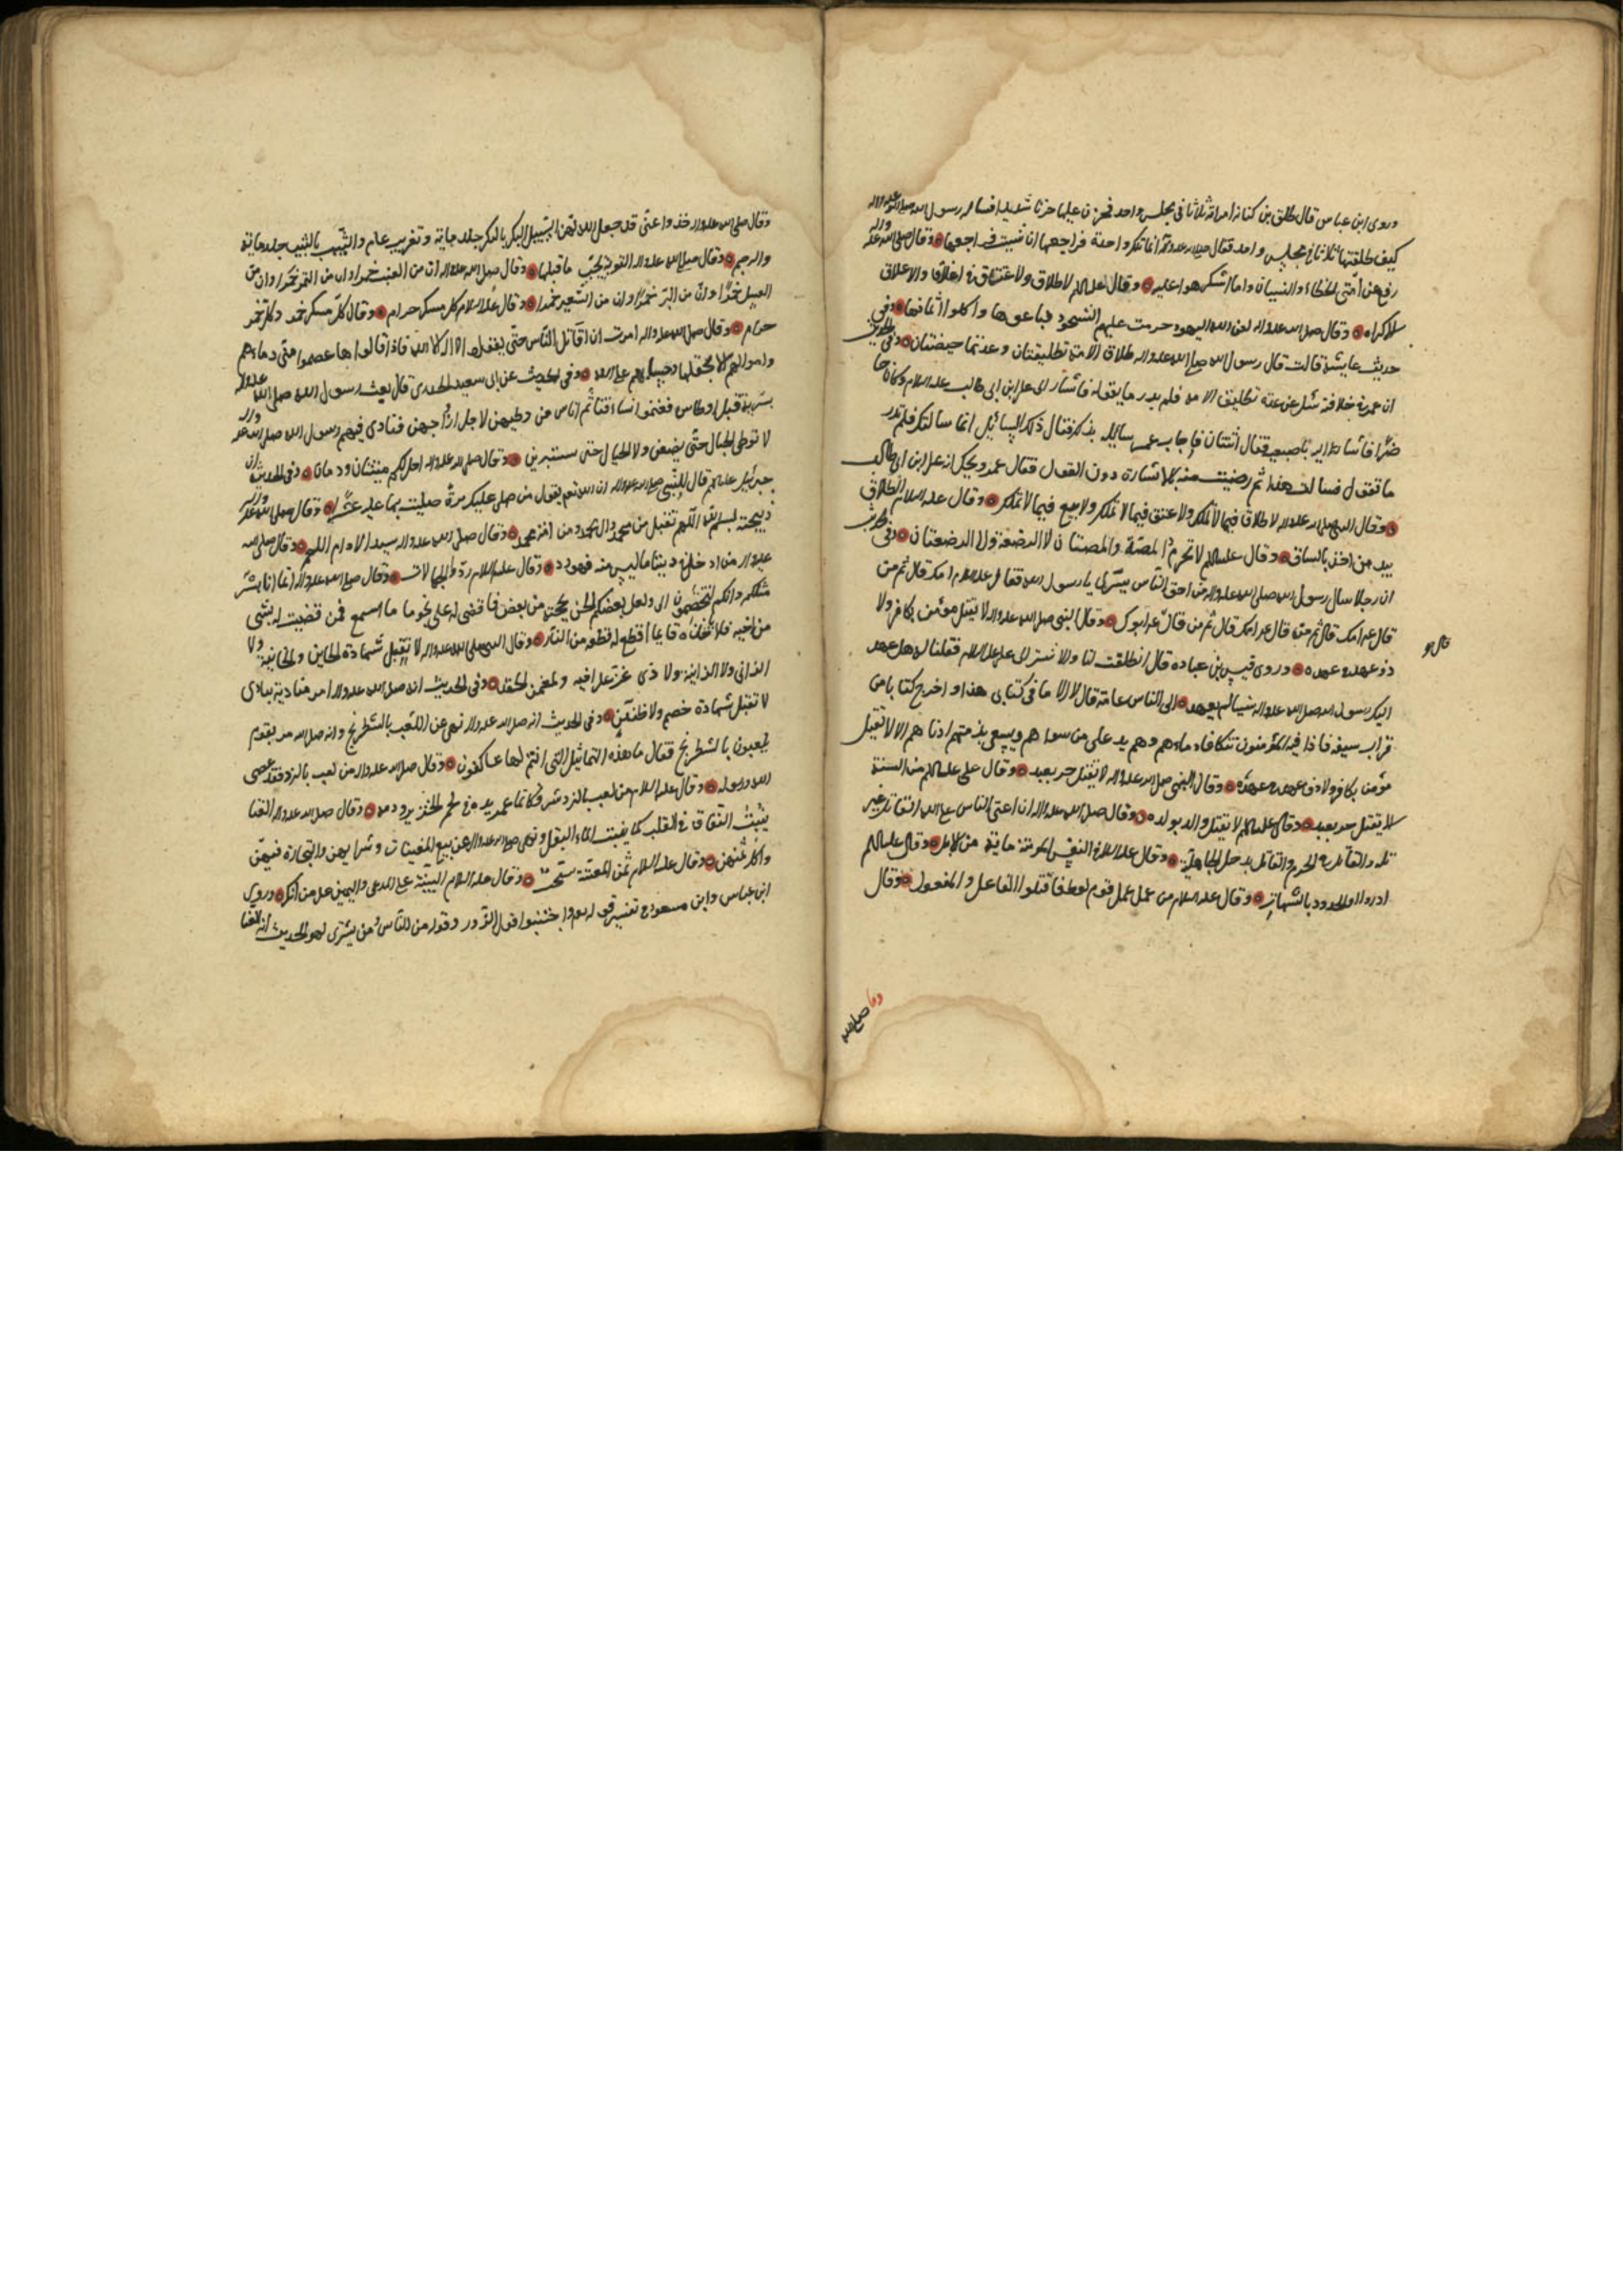 وروى ابن عباس قال طلق بن كنانة امراته ثلاثا في مجلس واحد فحزن عليها حزنا شديدا فساله رسول الله صلى الله عليه واله
كيف طلقتها ثلاثا في مجلس واحد فقال انما تلك واحدة فراجعها ان شئت فراجعها وقال صلى الله عليه واله
رفع عن امتى الخطاء والنسيان وما استكرهوا عليه وقال عليه السلم لا طلاق ولا عتاق في اغلاق والاغلاق
الاكراه وقال صلى الله عليه واله لعن الله اليهود حرمت عليهم الشحوم فباعوها واكلوا اثمانها وفى
حديث عايشة قالت قال رسول الله صلى الله عليه واله طلاق الامة تطليقتان وعدتها حيضتان وفى الحديث
ان عمر في خلافته سئل عن عدة تطليق الامة فلم يدر ما يقوله فاشار الى على ابن ابى طالب عليه السلام وكان حا
ضرا فاشار اليه باصبعيه فقال اثنتان فاجاب عمر سائله بذلك فقال ذلك السائل انما سالتك فلم تدر
ما تقول فسالت هذا ثم رضيت منه بالاشارة دون القول فقال عمر ويحك انه على ابن ابى طالب
وقال النبى صلى الله عليه واله لا طلاق فيما لا تملك ولا عتق فيما لا تملك ولا بيع فيما لا تملك وقال عليه السلام الطلاق
بيد من اخذ بالساق وقال عليه السلم لا تحرم المصة والمصتان ولا الرضعة ولا الرضعتان وفى الحديث
ان رجلا سال رسول الله صلى الله عليه واله من احق الناس يا رسول الله فقال عليه السلام امك قال ثم من
قال امك قال ثم من قال امك قال ثم من قال ابوك وقال النبى صلى الله عليه واله لا يقتل مؤمن بكافر ولا
ذو عهد في عهده وروى قيس بن عباده قال انطلقت انا والاشتر الى على عليه السلام فقلنا له هل عهد
اليك رسول الله صلى الله عليه واله شيئا لم يعهده الى الناس عامة قال لا الا ما في كتابى هذا واخرج كتابا من
قراب سيفه فاذا فيه المؤمنون تتكافاء دماءهم وهم يد على من سواهم ويسعى بذمتهم ادناهم الا لا يقتل
مؤمن بكافر ولا ذى عهد في عهده وقال النبى صلى الله عليه واله لا يقتل حر بعبد وقال على عليه السلم من السنة
الا يقتل حر بعبد وقال عليه السلم لا يقتل والد بولده وقال صلى الله عليه واله ان اعتى الناس على الله القاتل غير
قاتله والقاتل في الحرم والقاتل بدخل الجاهلية وقال عليه السلام في النفس المؤمنة ماية من الابل وقال عليه السلم
ادروا الحدود بالشبهات وقال عليه السلام من عمل عمل قوم لوط فاقتلوا الفاعل والمفعول وقال
وقال صلى الله عليه واله خذوا عنى قد جعل الله لهن السبيل البكر بالبكر جلد ماية وتغريب عام والثيب بالثيب جلد ماية
والرجم وقال صلى الله عليه واله التوبة تجب ما قبلها وقال صلى الله عليه واله ان من العنب خمرا وان من التمر خمرا وان من
العسل خمرا وان من البر خمرا وان من الشعير خمرا وقال عليه السلام كل مسكر حرام وقال كل مسكر خمر وكل خمر
حرام وقال صلى الله عليه واله امرت ان اقاتل الناس حتى يقولوا لا اله الا الله فاذا قالوها عصموا منى دماءهم
واموالهم الا بحقها وحسابهم على الله وفى الحديث عن ابى سعيد الخدرى قال بعث رسول الله صلى الله عليه واله
سرية قبل اوطاس فغنموا نساء فتاثم اناس من وطيهن لاجل ازواجهن فنادى فيهم رسول الله صلى الله عليه واله
لا توطى الحبالى حتى يضعن ولا الحيال حتى يستبرين وقال صلى الله عليه واله احل لكم ميتتان ودمان وفى الحديث ان
جبرئيل عليه السلم قال للنبى صلى الله عليه واله ان الله تعالى يقول من صلى عليك مرة صليت بها عليه عشرا وقال صلى الله عليه واله
ذبيحته بسم الله اللهم تقبل من محمد وال محمد ومن امة محمد وقال صلى الله عليه واله سيد الادام اللحم وقال صلى الله
عليه واله من ادخل في ديننا ما ليس منه فهو رد وقال عليه السلام ردوا الجهالات وقال صلى الله عليه واله انما انا بشر
مثلكم وانكم لتختصمون الى ولعل بعضكم الحن بحجته من بعض فاقضى له على نحو ما اسمع فمن قضيت له بشئ
من اخيه فلا ياخذنه فانما اقطع له قطعة من النار وقال النبى صلى الله عليه واله لا تقبل شهادة الخاين والخاينة ولا
الزانى ولا الزانية ولا ذى غمر على اخيه والغمز الحقد وفى الحديث انه صلى الله عليه واله امر مناديه ينادى
لا تقبل شهادة خصم ولا ظنين وفى الحديث انه صلى الله عليه واله نهى عن اللعب بالشطرنج وانه صلى الله مر بقوم
يلعبون بالشطرنج فقال ما هذه التماثيل التى انتم لها عاكفون وقال صلى الله عليه واله من لعب بالنرد فقد عصى
الله ورسوله وقال عليه السلام من لعب بالنردشير فكانما غمس يده في لحم الخنزير ودمه وقال صلى الله عليه واله الغنا
ينبت النفاق في القلب كما ينبت الماء البقل ونهى صلى الله عليه واله عن بيع المغنيات وشرايهن والتجارة فيهن
واكل ثمنهن وقال عليه السلام ثمن المغنية سحت وقال عليه السلام البينة على المدعى واليمين على من انكر وروى
ابن عباس وابن مسعود في تفسير قوله تعالى واجتنبوا قول الزور وقوله من الناس من يشترى لهو الحديث انه الغنا